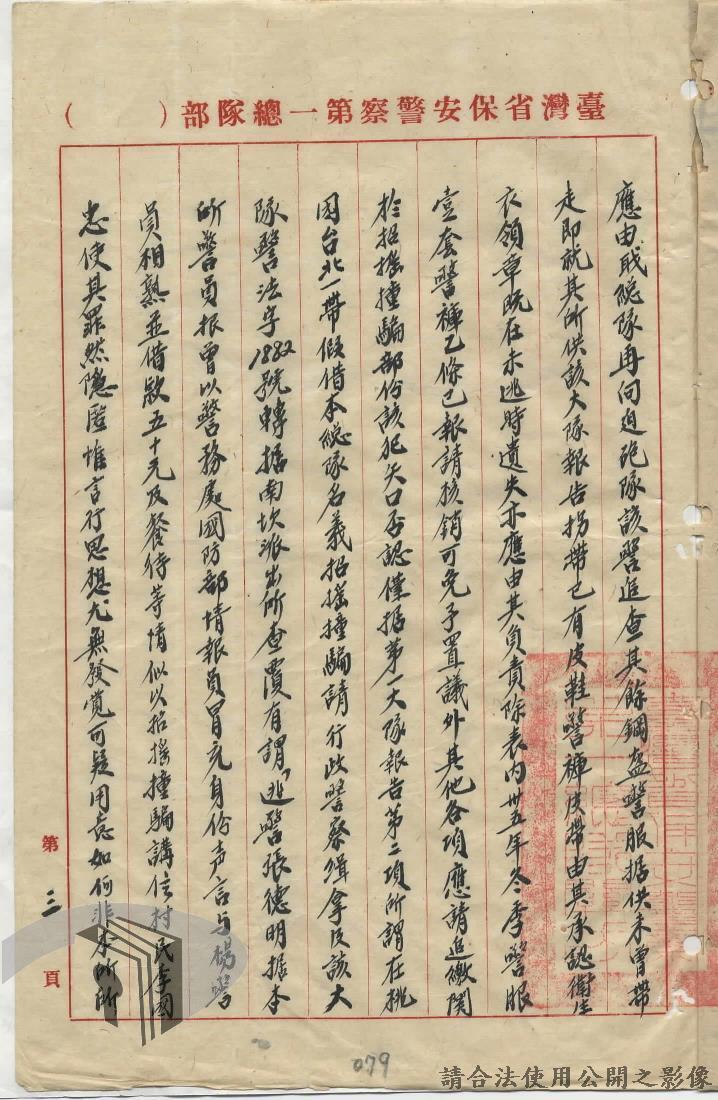 臺灣省保安警察第一總隊部（　　）
應由戝總隊再向迫砲隊該警追查其餘鋼盔警服据供未曾帶
走即就其所供該大隊報告拐帶已有皮鞋警褲皮帶由其承認衛生
衣領章既在未逃時遺失亦應由其負責除表內卅五年冬季警服
壹套警褲乙條已報請核銷可免予置議外其他各項應請追繳関
於招搖撞騙部份該犯矢口否認僅据第一大隊報告第二項所謂在桃
園台北一帶假借本總隊名義招搖撞騙請行政警察緝拿及該大
隊警法字1882號轉据南坎派出所查覆有謂「逃警張德明据本
所警員報曾以警務處國防部情報員冒充身份声言与楊警
員相熟並借欵五十元及餐待等情似以招搖撞騙講住村民李國
忠使其罪然隱匿惟言行思想尤無發覚可疑用意如何非本所所
第三頁
079
請合法使用公開之影像